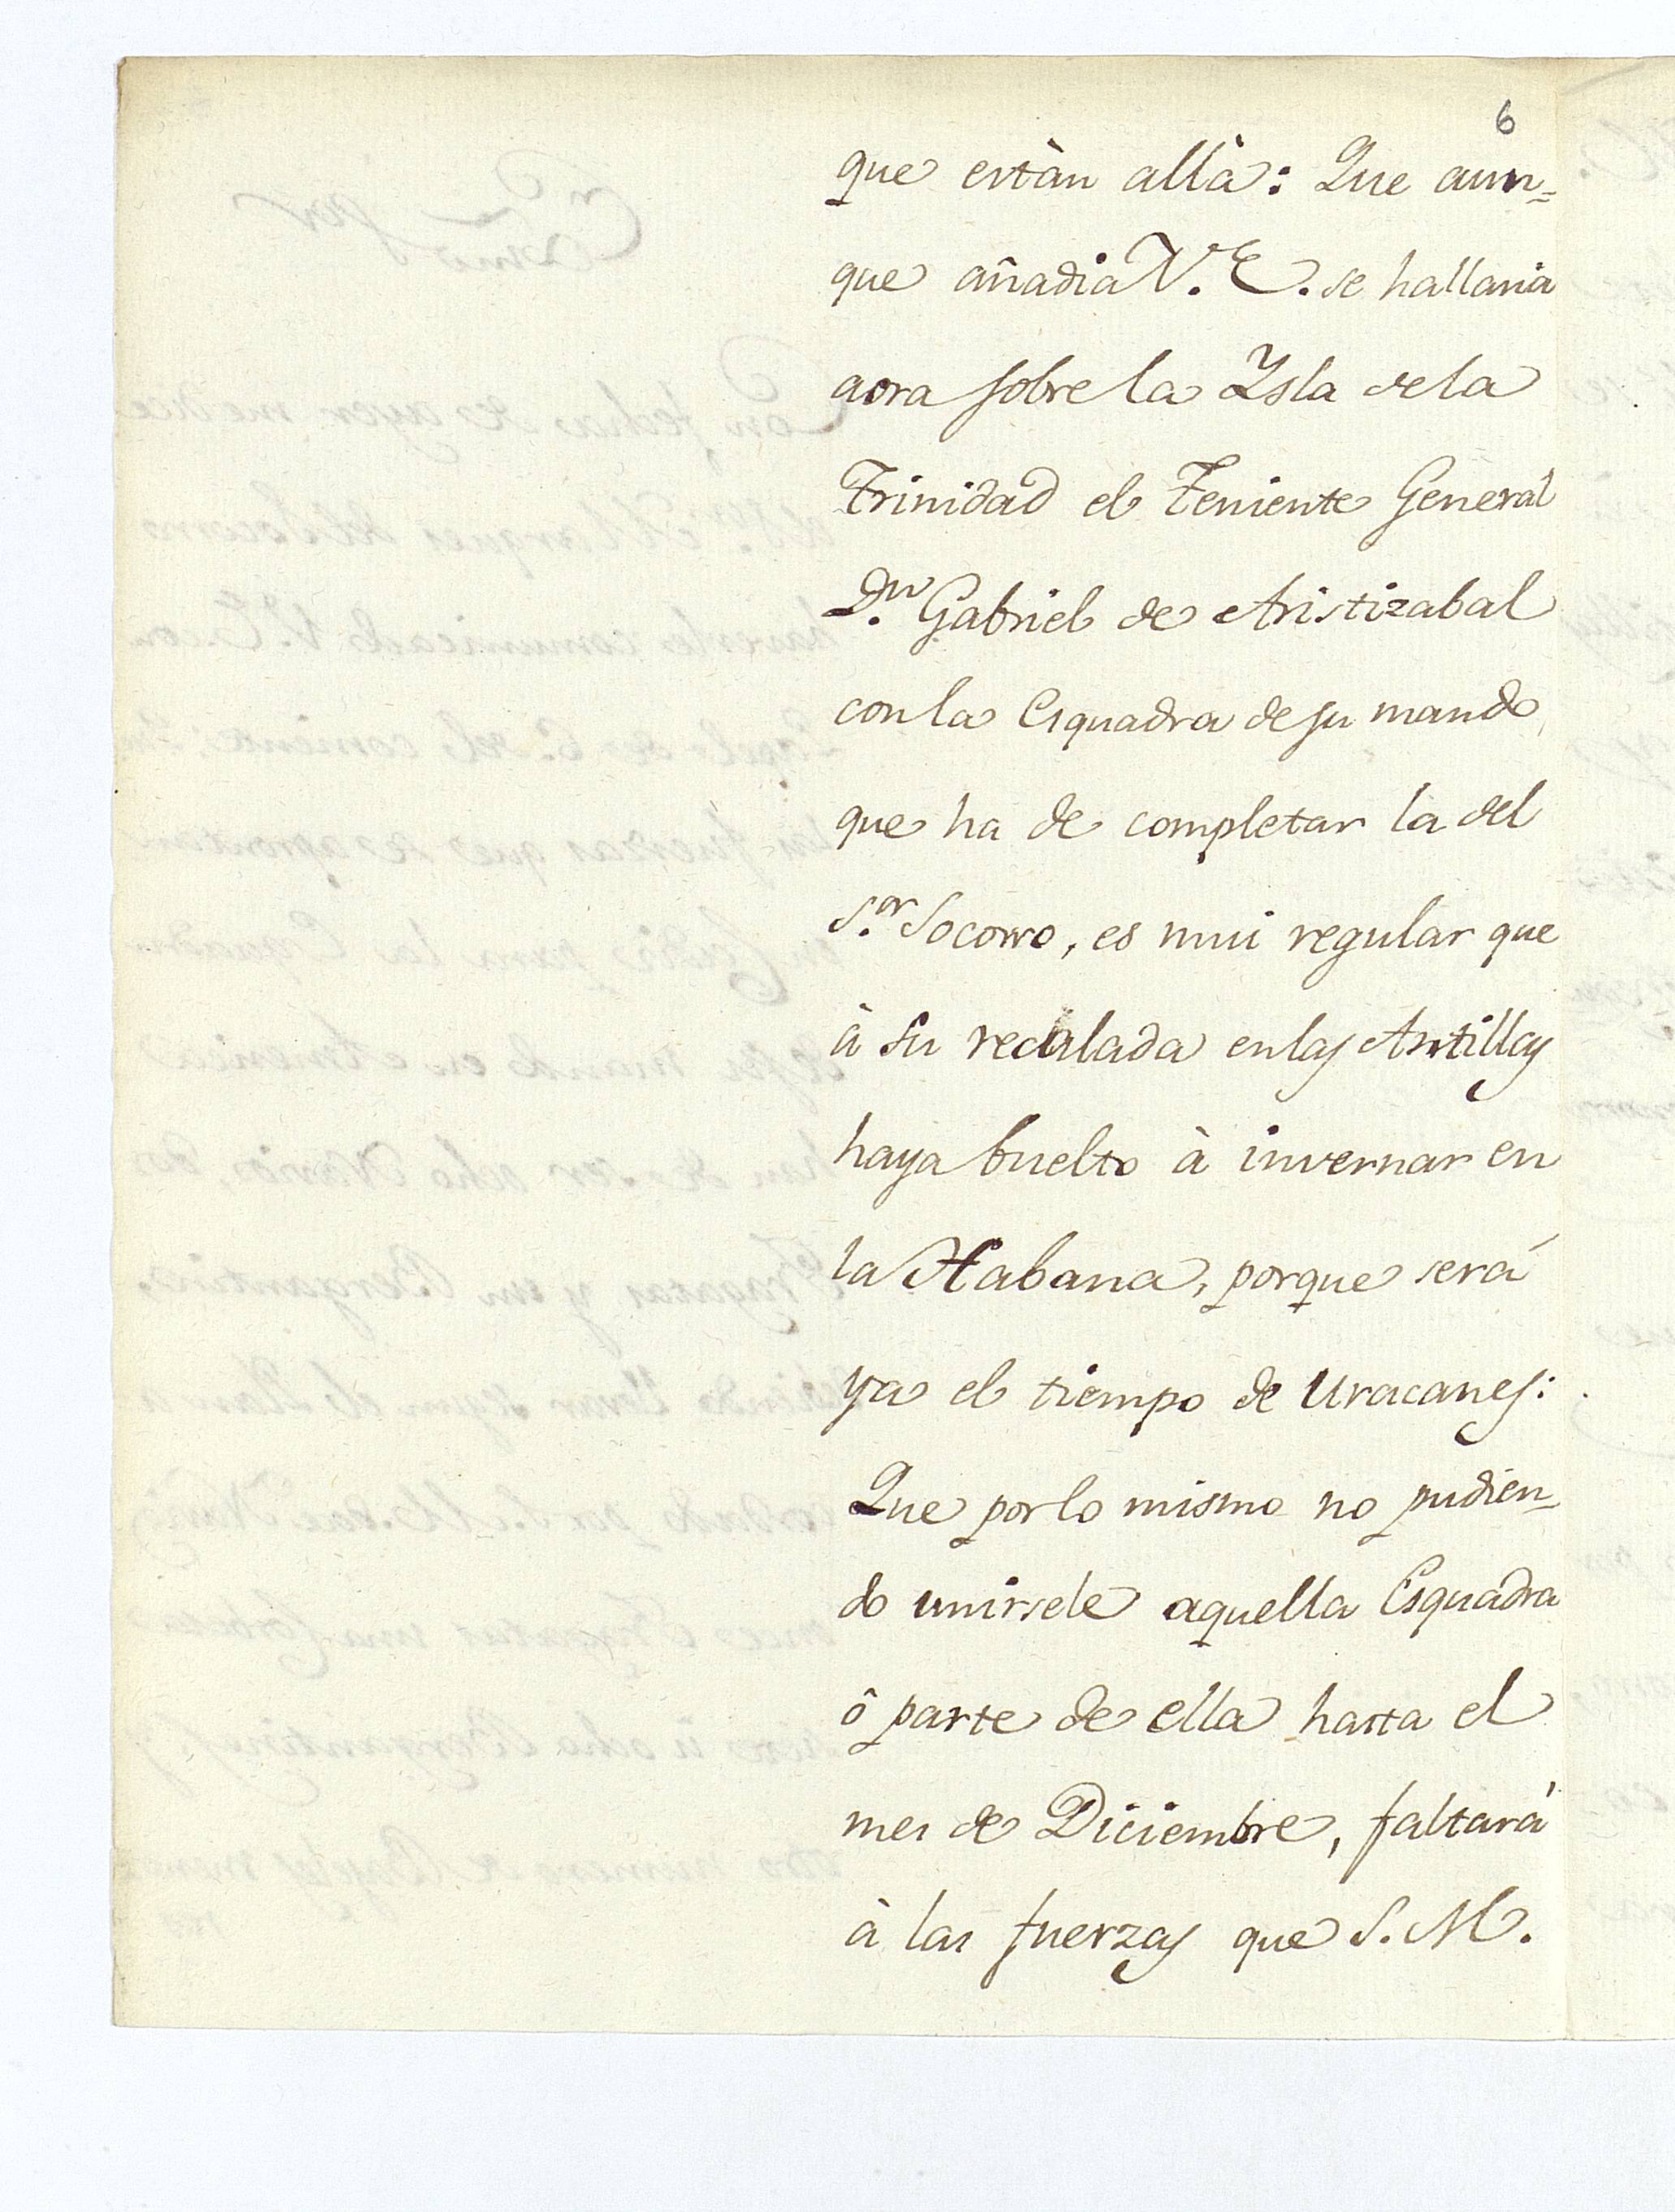 6
que están allà: Que aun=
que añadia V.E. se hallaria
aora sobre la Ysla de la
Trinidad el Teniente General
D.n Gabriel de Aristizabal
con la Esquadra de su mando
que ha de completar la del
S.or Socorro, es mui regular que
à su recalada en las Antillas
haya buelto à invernar en
la Habana, porque será
ya el tiempo de Uracanes:
Que por lo mismo no pudien=
do unirsele aquella Esquadra
ô parte de ella hasta el
mes de Diciembre, faltará
à las fuerzas que S.M.